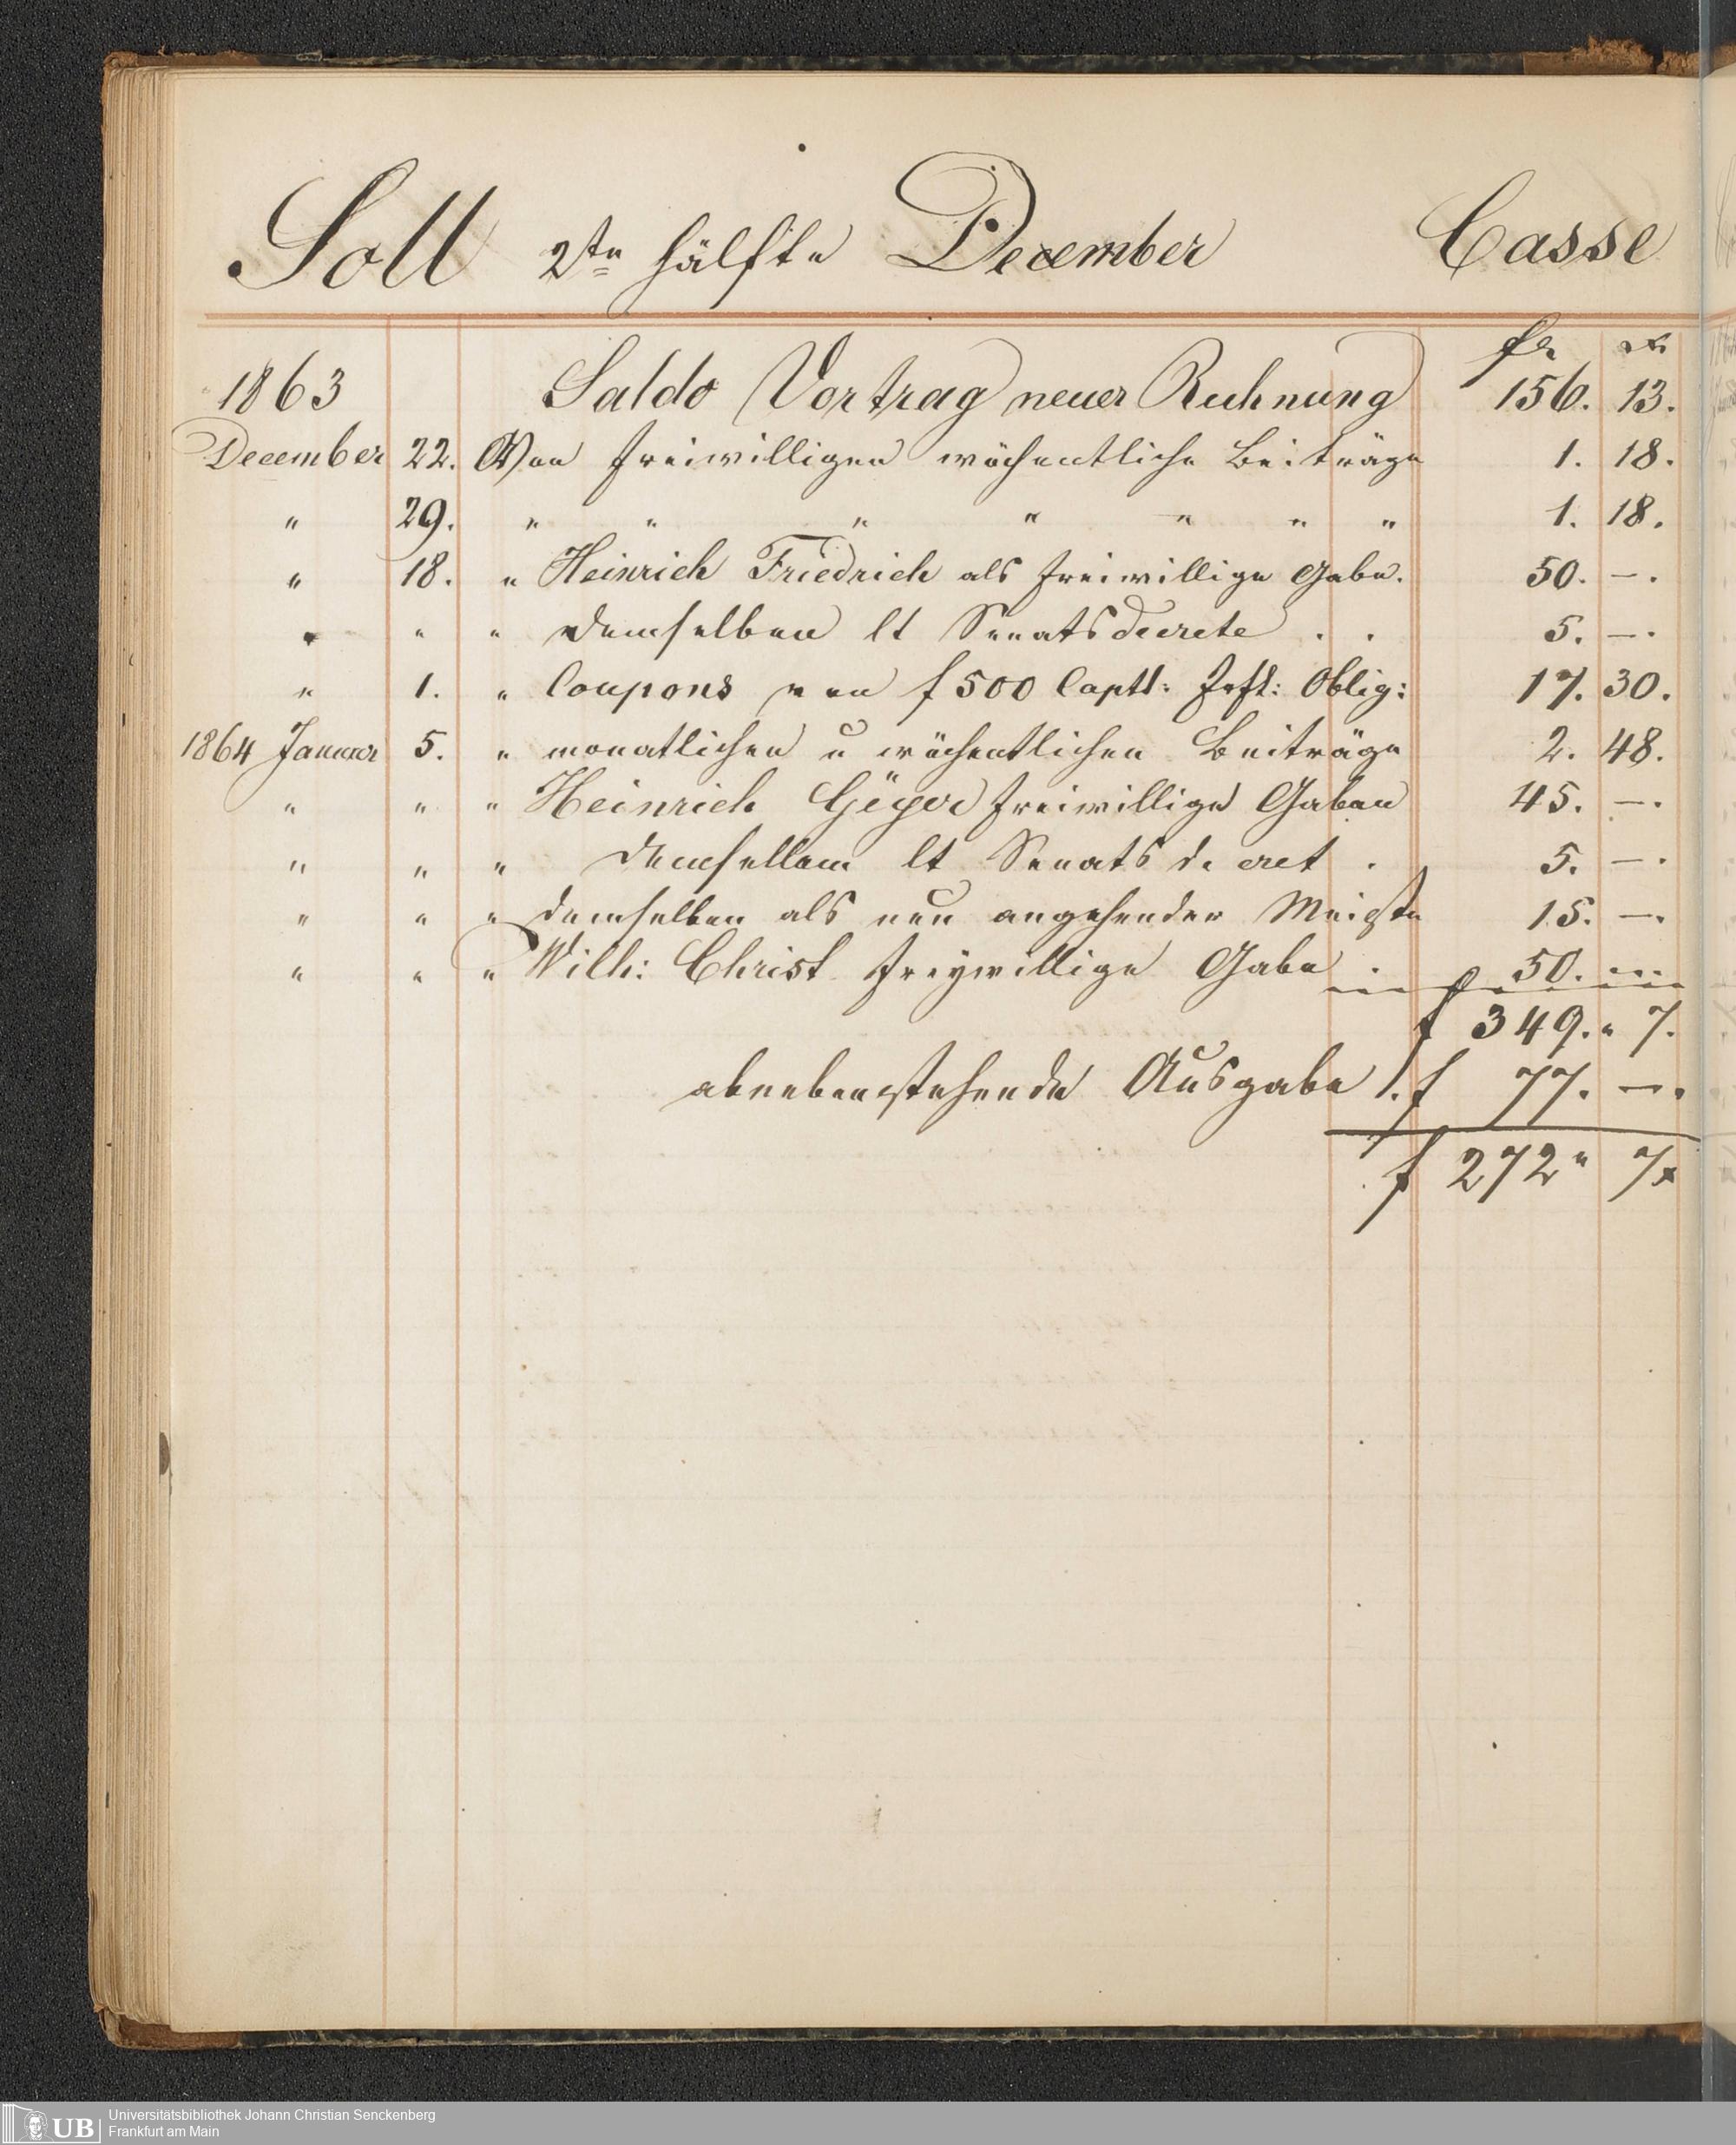 Soll 2te Hälfte December Casse
fl x
1863 Saldo Vortrag neuer Rechnung 156. 13.
December 22. Von freiwilligen wöchentliche Beiträge 1. 18.
" 29. " " " " " " " 1. 18.
" 18. " Heinrich Friedrich als freiwillige Gabe. 50. —.
" " " demselben lt Senatsdecrete . . 5. —.
" 1. " Coupons von f 500 Captl: Frft: Oblig: 17. 30.
1864 Januar 5. " monatlichen u wöchentlichen Beiträge 2. 48.
" " " Heinrich freiwillige Gaben 45. —.
" " " demselben lt Senats decret . 5. —.
" " " demselben als neu angehender Meister 15. —.
" " " Wilh: Christ freywillige Gabe . 50. —
f 349. " 7.
abnebenstehende Ausgabe /. f 77. —.
f 272 " 7x
UB Universitätsbibliothek Johann Christian Senckenberg
Frankfurt am Main